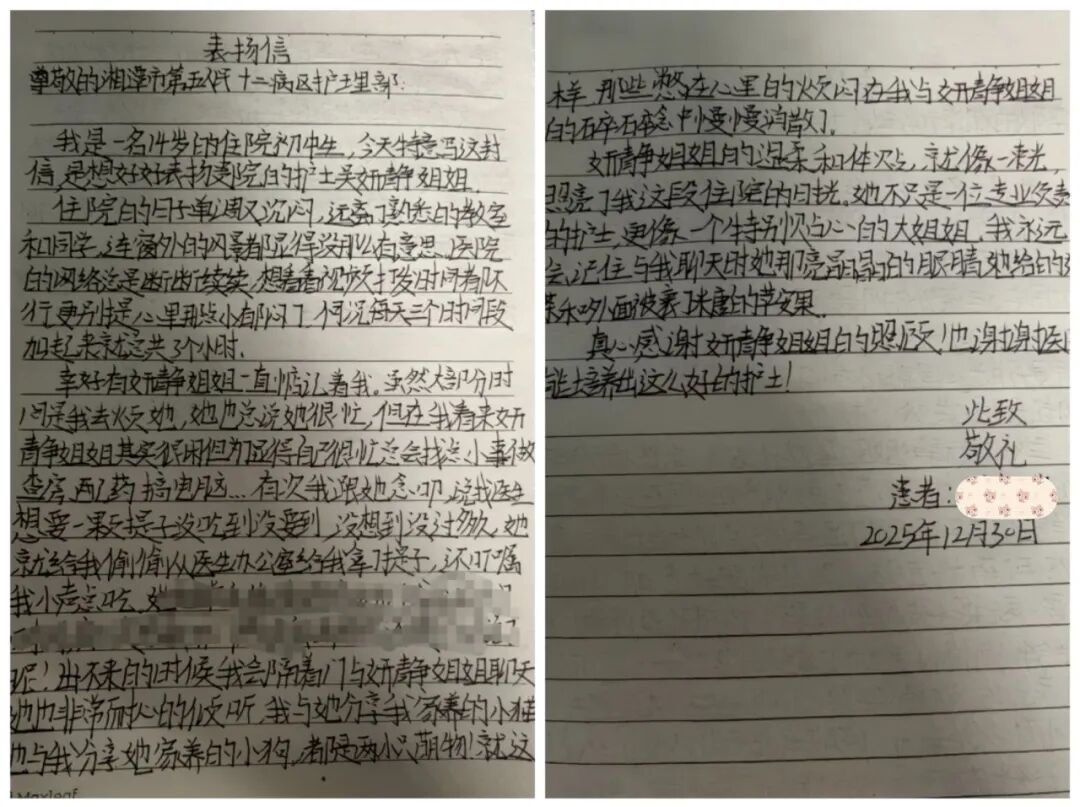 表扬信
尊敬的湘潭市第五人民十二病区护士里部:
我是一名14岁的住院初中生，今天特意写这封
信，是想好好表扬贵院的护士吴妍静姐姐。
住院的日子单调又沉闷，远离了熟悉的教室
和同学，连窗外的风景都显得没那么有意思。医院
的网络总是断断续续，想看看视频打发时间都不
行，更别提心里那些小郁闷了。何况每天三个时间段
加起来就总共3个小时。
幸好有妍静姐姐一直惦记着我。虽然大部分时
间是我去烦她，她也总说她很忙，但在我看来妍
静姐姐其实很闲但为显得自己很忙总会找点小事做
查房、配药、搞电脑…有次我跟她念叨，说我医生
想要一颗提子没吃到没要到，没想到没过多久，她
就给我偷偷从医生办公室给我拿提子，还叮嘱
我小声点吃。她
呢！出不来的时候我会隔着门与妍静姐姐聊天
她也非常耐心的倾听，我与她分享我家养的小猫
她与我分享她家养的小狗，都是两小只萌物！就这
样，那些憋在心里的烦闷在我与妍静姐姐
的碎碎念中慢慢消散了。
妍静姐姐的温柔和体贴，就像一束光，
照亮了我这段住院的时光。她不只是一位专业负责
的护士，更像一个特别贴心的大姐姐。我永远
会记住与我聊天时她那亮晶晶的眼睛，她给的
和外面被裹了味道的苹果。
真心感谢妍静姐姐的照顾！也谢谢医
能培养出这么好的护士！
此致
敬礼
患者：
2025年12月30日
Maxleaf